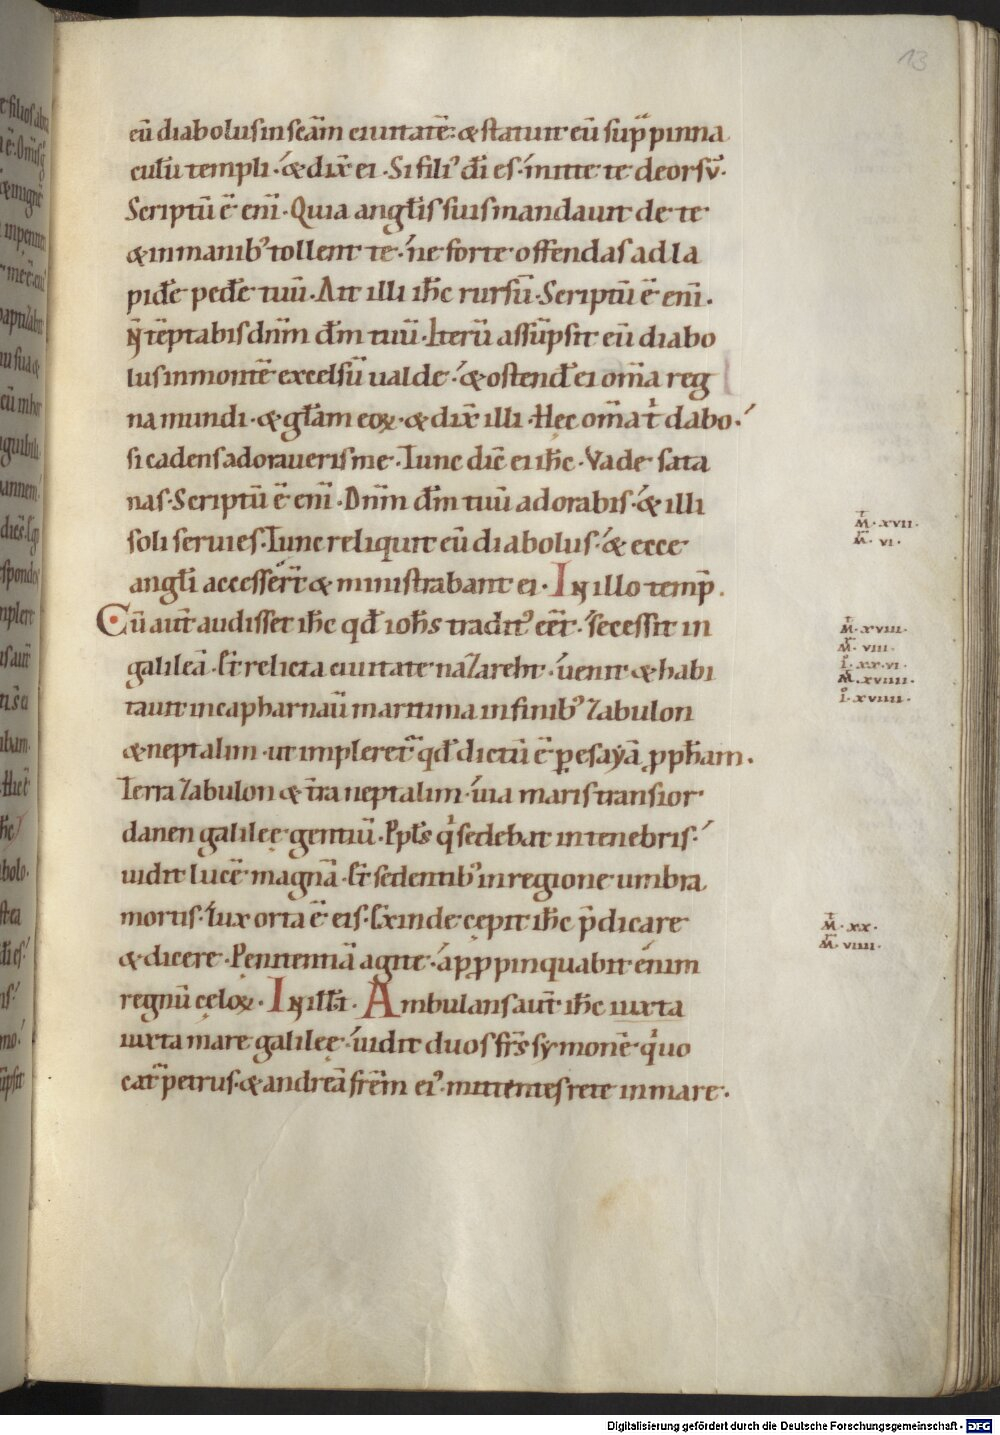 13
eū diabolus in scām ciuitatē: & statuit eū sup̄ pinna
culū templi. & dix̄ ei. Si filiꝰ dī es. mitte te deorsū.
Scriptū ē enī. Quia angłis suis mandauit de te
& in manibꝰ tollent te. ne forte offendas ad la
pidē pedē tuū. Ait illi ihc̄ rursū. Scriptū ē enī.
N̄ tēptabis dnm̄ dm̄ tuū. Iterū assūpsit eū diabo
lus in montē excelsū ualde. & ostend̄ ei om̄a reg
na mundi. & głam eoꝝ. & dix̄ illi. Hec om̄a t̄ dabo.
si cadens adoraueris me. Tunc dic̄ ei ihc̄. Vade sata
nas. Scriptū ē enī. Dnm̄ dm̄ tuū adorabis. & illi
soli seruies. Tunc reliquit eū diabolus. & ecce
angłi accesser̄t & ministrabant ei. In illo temp̄.
Cū aut̄ audisset ihc̄ qd̄ ioh̄s traditꝰ eēt. secessit in
galileā. Et relicta ciuitate nazareht. uenit & habi
tauit in capharnaū maritima in finibꝰ zabulon
& neptalim. ut impleret̄ qd̄ dictū ē ꝑ esayā ꝓph̄am.
Terra zabulon & t̄ra neptalim. uia maris transior
danen galileę gentiū. Ppłs qͥ sedebat in tenebris.
uidit lucē magnā. Et sedentibꝰ in regione umbra
mortis. lux orta ē eis. Exinde cępit ihc̄ p̄dicare
& dicere. Penitentiā agite. apꝓpinquabit enim
regnū cęloꝝ. In ill̄t. Ambulans aut̄ ihc̄ iuxta
iuxta mare galileę. uidit duos frs̄ symonē qͥ uo
cat̄ petrus. & andreā frēm eiꝰ. mittentes rete in mare.
M̄. xvii.
M̄. vi.
M̄. xviii.
M̄. viii.
I. xx. vi.
M̄. xviiii.
I. xviiii.
M̄. xx.
M̄. viiii.
Digitalisierung gefördert durch die Deutsche Forschungsgemeinschaft - DFG